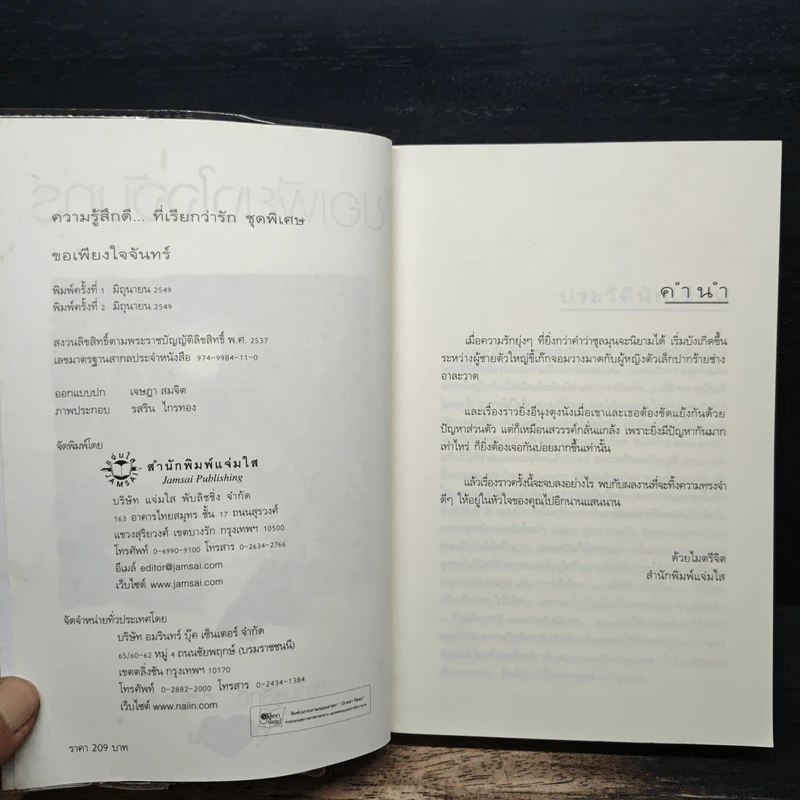 ความรู้สึกดี... ที่เรียกว่ารัก ชุดพิเศษ
ขอเพียงใจจันทร์
พิมพ์ครั้งที่ 1 มิถุนายน 2549
พิมพ์ครั้งที่ 2 มิถุนายน 2549
สงวนลิขสิทธิ์ตามพระราชบัญญัติลิขสิทธิ์ พ.ศ. 2537
เลขมาตรฐานสากลประจำหนังสือ 974-9984-11-0
ออกแบบปก เจษฎา สมจิต
ภาพประกอบ รสริน ไกรทอง
จัดพิมพ์โดย
สำนักพิมพ์แจ่มใส
Jamsai Publishing
บริษัท แจ่มใส พับลิชชิ่ง จำกัด
163 อาคารไทยสมุทร ชั้น 17 ถนนสุรวงศ์
แขวงสุริยวงศ์ เขตบางรัก กรุงเทพฯ 10500
โทรศัพท์ 0-6990-9100 โทรสาร 0-2634-2766
อีเมล์ editor@jamsai.com
เว็บไซต์ www.jamsai.com
จัดจำหน่ายทั่วประเทศโดย
บริษัท อมรินทร์ บุ๊ค เซ็นเตอร์ จำกัด
65/60-62 หมู่ 4 ถนนชัยพฤกษ์ (บรมราชชนนี)
เขตตลิ่งชัน กรุงเทพฯ 10170
โทรศัพท์ 0-2882-2000 โทรสาร 0-2434-1384
เว็บไซต์ www.naiin.com
ราคา 209 บาท
คำนำ
เมื่อความรักยุ่งๆ ที่ยิ่งกว่าคำว่าชุลมุนจะนิยามได้ เริ่มบังเกิดขึ้น
ระหว่างผู้ชายตัวใหญ่ขี้เก๊กจอมวางมาดกับผู้หญิงตัวเล็กปากร้ายช่าง
อาละวาด
และเรื่องราวยิ่งอีนุงตุงนังเมื่อเขาและเธอต้องขัดแย้งกันด้วย
ปัญหาส่วนตัว แต่ก็เหมือนสวรรค์กลั่นแกล้ง เพราะยิ่งมีปัญหากันมาก
เท่าไหร่ ก็ยิ่งต้องเจอกันบ่อยมากขึ้นเท่านั้น
แล้วเรื่องราวครั้งนี้จะจบลงอย่างไร พบกับผลงานที่จะทิ้งความทรงจำ
ดีๆ ให้อยู่ในหัวใจของคุณไปอีกนานแสนนาน
ด้วยไมตรีจิต
สำนักพิมพ์แจ่มใส